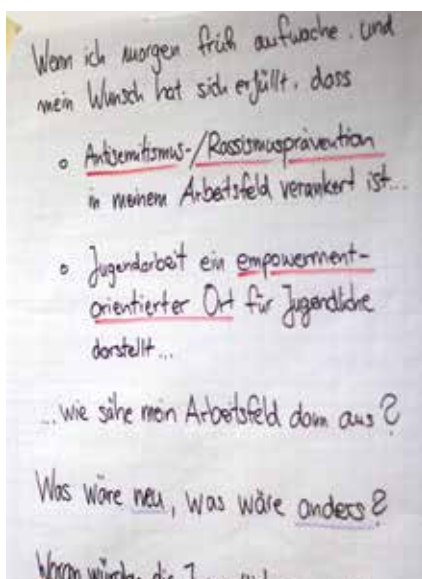 Wenn ich morgen früh aufwache, und
mein Wunsch hat sich erfüllt, dass
o Antisemitismus-/Rassismusprävention
in meinem Arbeitsfeld verankert ist...
o Jugendarbeit ein empowerment-
orientierter Ort für Jugendliche
darstellt...
...wie sähe mein Arbeitsfeld dann aus?
Was wäre neu, was wäre anders?
Woran würden die